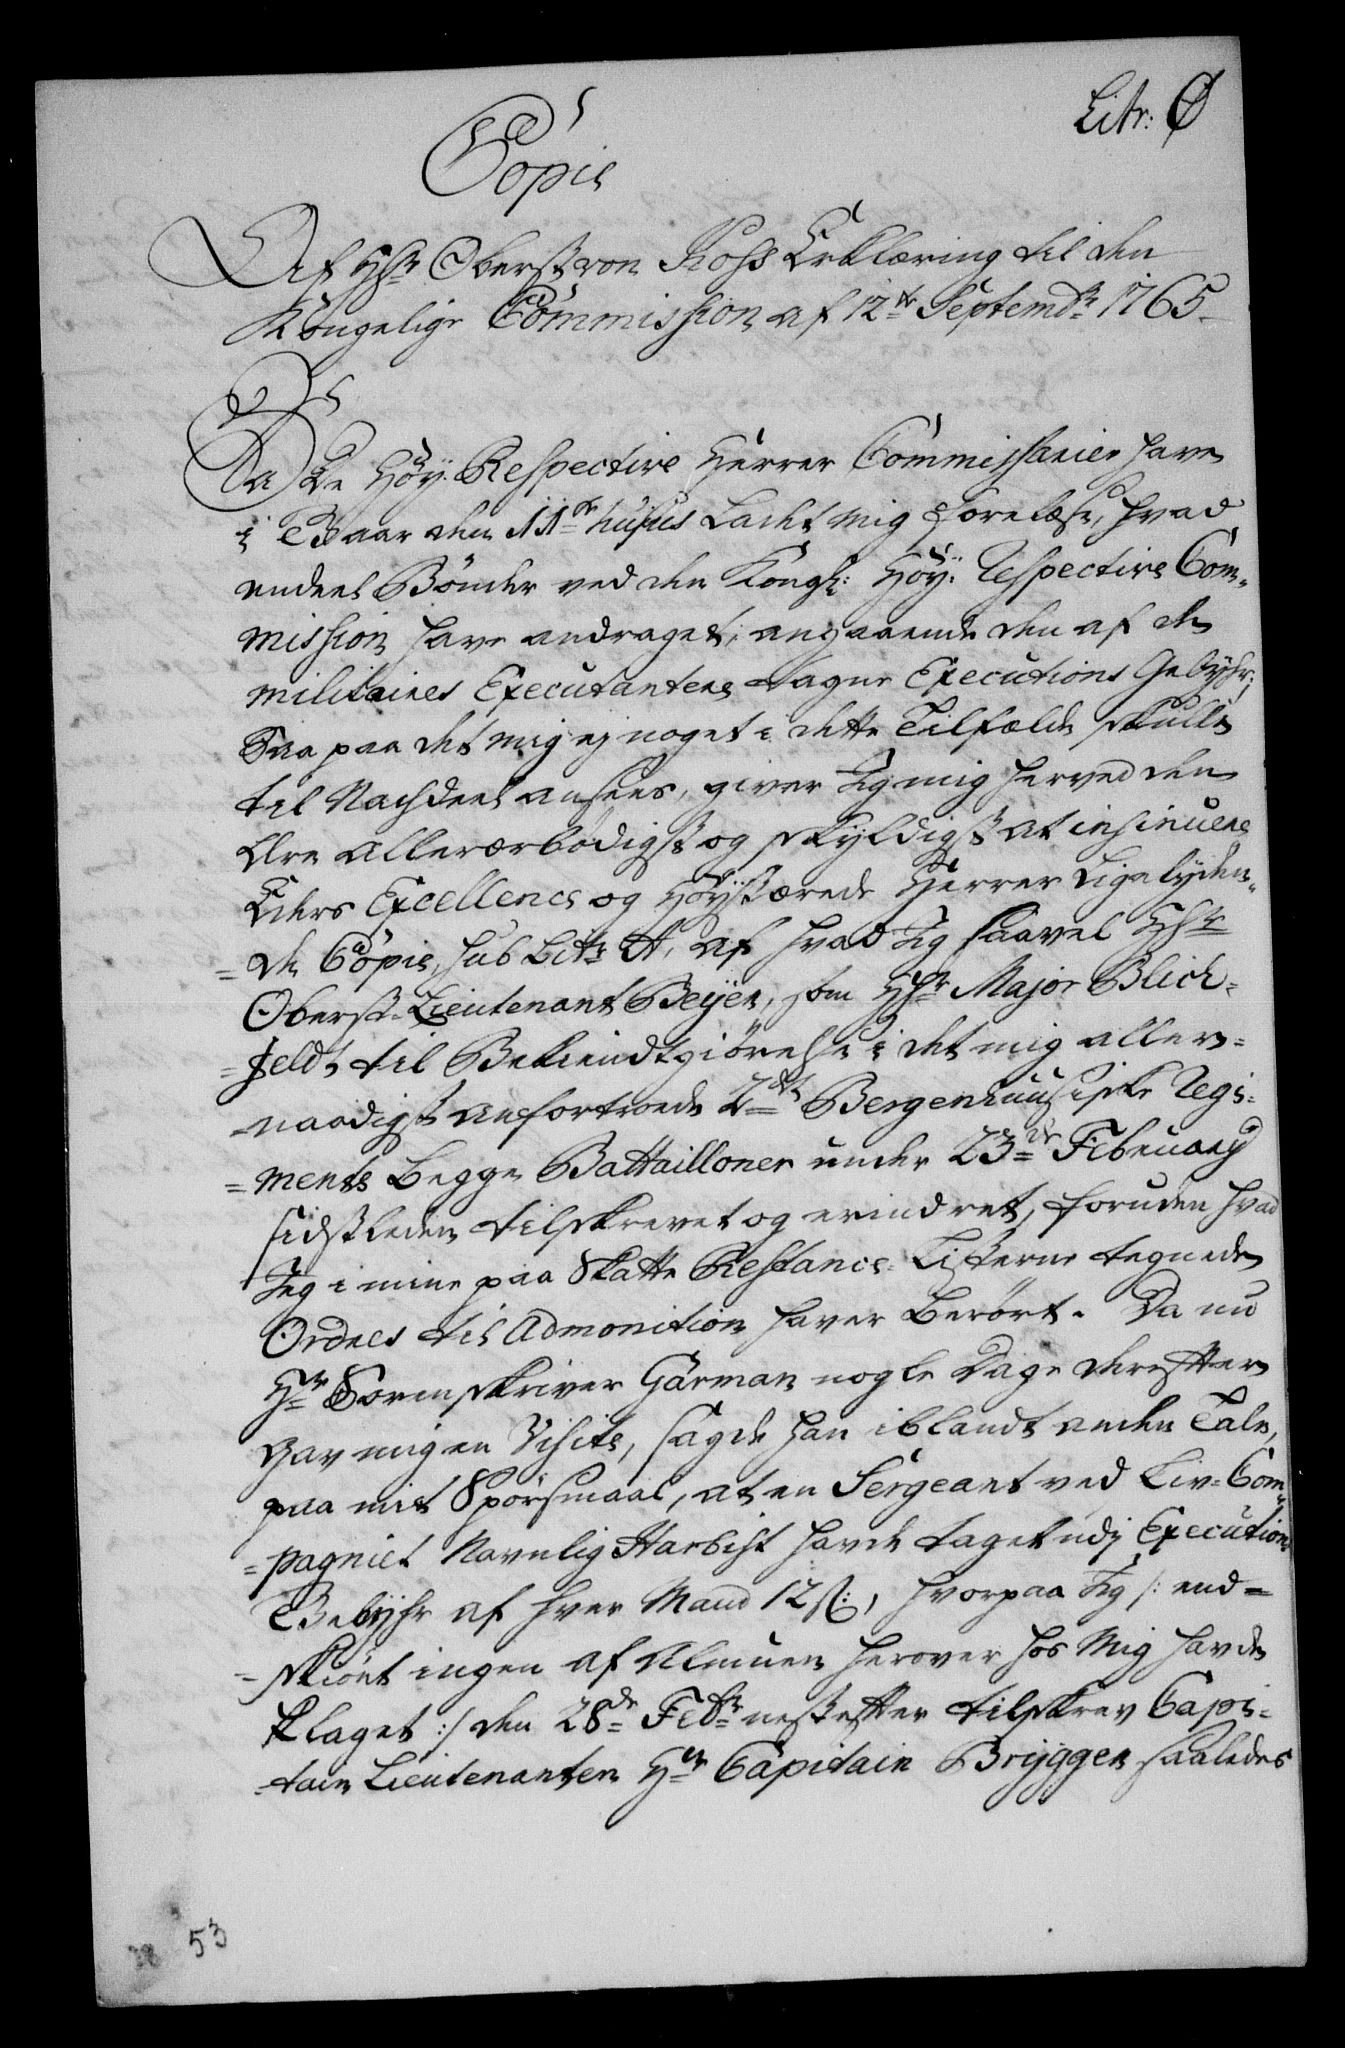 Litr: Ø
Copie
Af Hr Oberst von Kohs Erklæring til den
Kongelige Commission af 12te Septembr 1765
Da De Høy. Respective Herrer Commissarier have
i Baar den 11te hujus ladet mig forelæse, hvad
endeel Bønder ved den Kongl: Høy: Respective Com-
mission have andraget, angaaende den af de
militaires Executantere tagne Executions Gebyhr,
Saa paa det mig ej noget i dette Tilfælde skulle
til Nachdeel ansees, giver Jeg mig herved den
Ære allerærbødigst og skyldigst at insinuere
Eders Excellence og Høystærede Herrer Ligelyden-
=de Copie, sub Litr A, af hvad Jeg saavel Hr
Oberst-Lieutenant Beyer, som Hr Major Blich-
=feldt til Bekiendtgiørelse i det mig aller-
naadigst anfortroede 2det Bergenhuusiske Regi-
=ments begge Battailloner under 23de Februarij
sidstleden tilskrevet og erindret, foruden hvad
Jeg i mine paa Skatte Restance-Listerne tegnede
Ordres til Admonition haver berørt. Da nu
Hr Sorenskriver Garman nogle Dage derefter
gav mig en Visite, sagde han iblandt anden Tale,
paa mit Spørsmaal, at en Sergeant ved Liv-Com-
=pagniet Navnlig Harbist havde taget udj Execution
Gebyhr af hver Mand 12 s:, hvorpaa Jeg /: end-
=skiønt ingen af Almuen herover hos Mig havde
klaget :/ den 28de Febr nestefter tilskrev Capi-
=tain Lieutenanten Hr Capitain Brygger saaledes
53